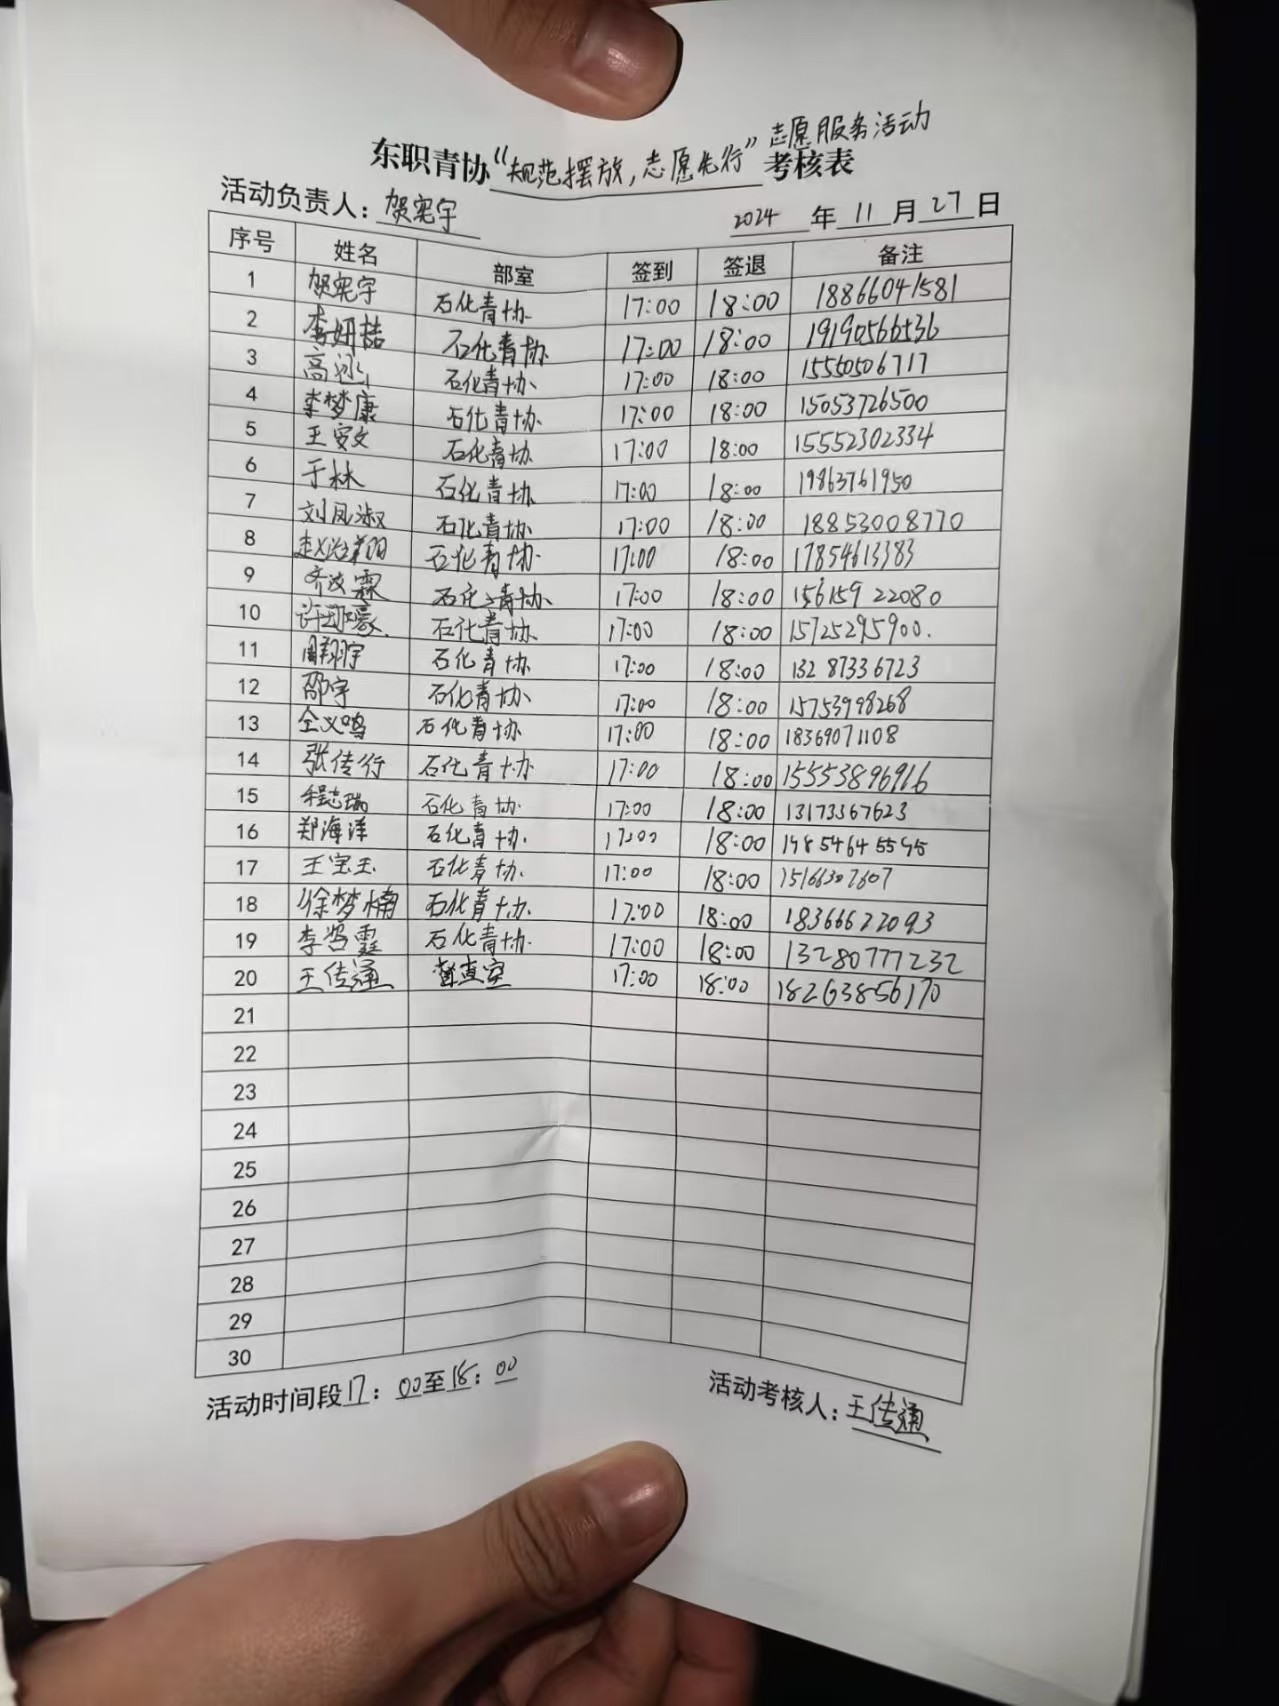 东职青协“规范摆放,志愿先行”志愿服务活动考核表
活动负责人：贺宪宇 2024年11月27日
序号 姓名 部室 签到 签退 备注
1 贺宪宇 石化青协 17:00 18:00 18866041581
2 李妍喆 石化青协 17:00 18:00 19190566536
3 高 石化青协 17:00 18:00 15550506717
4 李梦康 石化青协 17:00 18:00 15053726500
5 王安文 石化青协 17:00 18:00 15552302334
6 于林 石化青协 17:00 18:00 19863761950
7 刘凤淑 石化青协 17:00 18:00 18853008770
8 赵 翔 石化青协 17:00 18:00 17854613383
9 齐 霖 石化青协 17:00 18:00 15615922080
10 许 石化青协 17:00 18:00 15725295900.
11 周翔宇 石化青协 17:00 18:00 13287336723
12 邵宇 石化青协 17:00 18:00 15753998268
13 全义鸣 石化青协 17:00 18:00 18369071108
14 张传行 石化青协 17:00 18:00 15553896916
15 程志瑞 石化青协 17:00 18:00 13173367623
16 郑海洋 石化青协 17:00 18:00
17 王宝玉 石化青协 17:00 18:00 15166307607
18 徐梦楠 石化青协 17:00 18:00 18366622093
19 李 霆 石化青协 17:00 18:00 13280777232
20 王传通 督查室 17:00 18:00 18263856170
21
22
23
24
25
26
27
28
29
30
活动时间段17：00至18：00 活动考核人：王传通